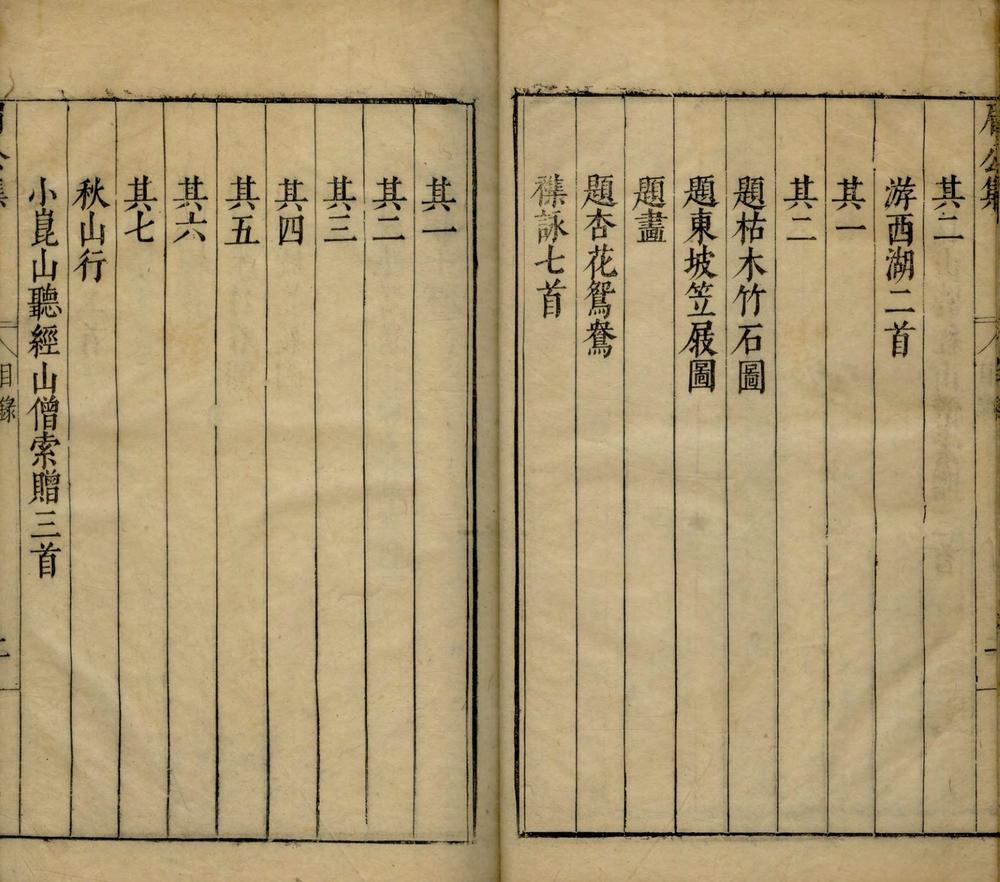 其二
游西湖二首
其一
其二
題枯木竹石圖
題東坡笠屐圖
題畵
題杏花鴛鴦
襍詠七首
其一
其二
其三
其四
其五
其六
其七
秋山行
小崑山聽經山僧索贈三首
目錄